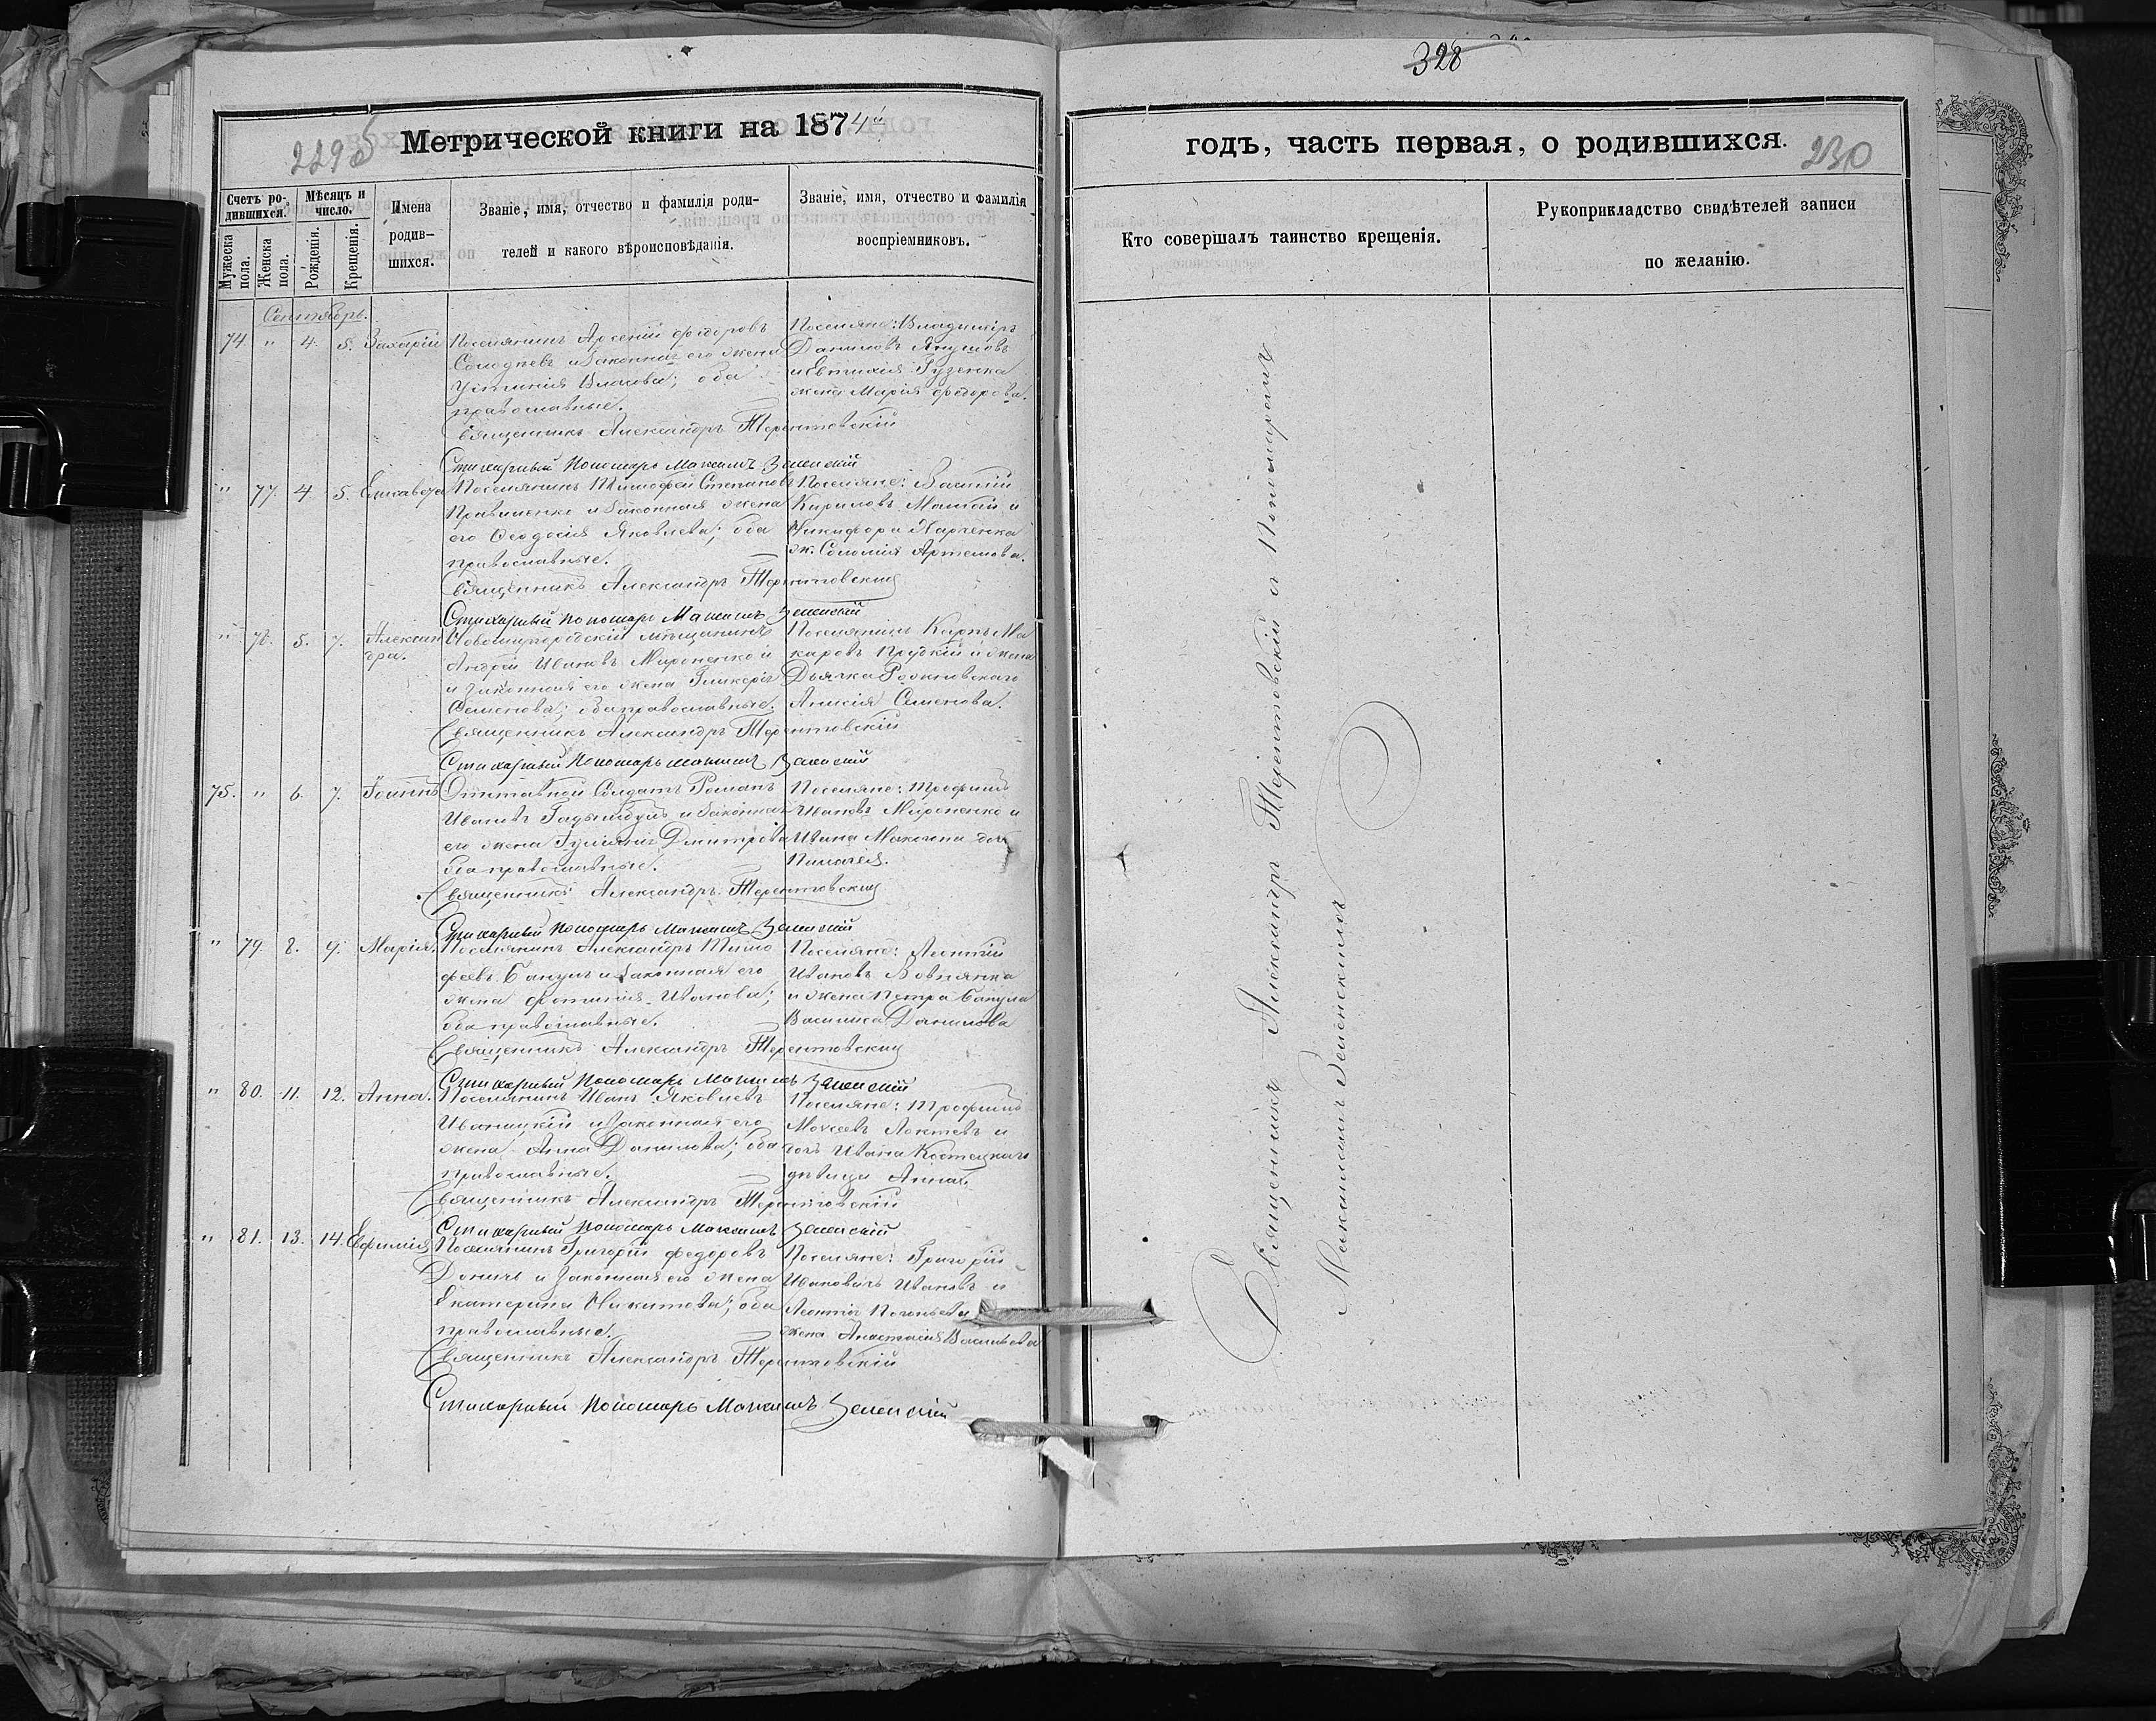 328
Метрической книги на 1874й
229
годъ, часть первая, о родившихся.
230
Счетъ ро-
дившихся.
Мужеска
пола.
Женска
пола.
Мѣсяцъ и
число.
Рожденія.
Крещенія.
Имена
родив-
шихся.
Званіе, имя, отчество и фамилія роди-
телей и какого вѣроисповѣданія.
Званіе, имя, отчество и фамилія
воспріемниковъ.
Кто совершалъ таинство крещенія.
Рукоприкладство свидѣтелей записи
по желанію.
Сентябрь.
74. " 4. 5. Захарій
Поселянинъ Арсеній Федоровъ
и законная его жена
Устинія Власова; оба
православные.
Поселяне: Владиміръ
Даниловъ Янушовъ
и Евтихія Гузенка
жена Марія Федорова.
Священникъ Александръ Терентовскій
Стихарный Пономарь Максимъ Зеленскій
" 77. 4. 5. Елисавета
Поселянинъ Тимофей Степановъ
и законная жена
его Феодосія Яковлева; оба
православные.
Поселяне: Василій
Кириловъ и
Никифора Харченка
ж. Соломія Артемова.
Священникъ Александръ Терентовскій
Стихарный Пономарь Максимъ Зеленскій
" 78. 5. 7. Александра.
Новомиргородскій мѣщанинъ
Андрей Ивановъ Мироненко и
и законная его жена Гликерія
Семенова; оба православные.
Поселянинъ Карпъ Ма
каровъ Прудкій и жена
Дьячка
Анисія Семенова.
Священникъ Александръ Терентовскій
Стихарный Пономарь Максимъ Зеленскій
75. " 6. 7.
Отставной Солдатъ Романъ
Ивановъ и законная
его жена Дмитрова
оба православные.
Поселяне: Трофимъ
Ивановъ Мироненко и
Ивана дочь
Пелагея.
Священникъ Александръ Терентовскій
Стихарный Пономарь Максимъ Зеленскій
" 79. 8. 9. Марія.
Поселянинъ Александръ Тимо
феевъ Банулъ и законная его
жена Фотинія Иванова;
оба православные.
Поселяне: Леонтій
Ивановъ Вовнянка
и жена Петра Банула
Василиса Данилова
Священникъ Александръ Терентовскій
Стихарный Пономарь Максимъ Зеленскій
" 80. 11. 12. Анна.
Поселянинъ Иванъ Яковлевъ
Иваницкій и законная его
жена Анна Данилова; оба
православные.
Поселяне: Трофимъ
Моисеевъ Локтевъ и
дочь Ивана Костецкаго
дѣвица Анна.
Священникъ Александръ Терентовскій
Стихарный Пономарь Максимъ Зеленскій
" 81. 13. 14. Евфимія
Поселянинъ Григорій Федоровъ
Доничъ и законная его жена
Екатерина Никитова; оба
православные.
Поселяне: Григорій
Ивановичъ Ивановъ и
Леонтія
жена Анастасія Васильева
Священникъ Александръ Терентовскій
Стихарный Пономарь Максимъ Зеленскій
Священникъ Александръ Терентовскій съ Пономаремъ
Максимомъ Зеленскимъ